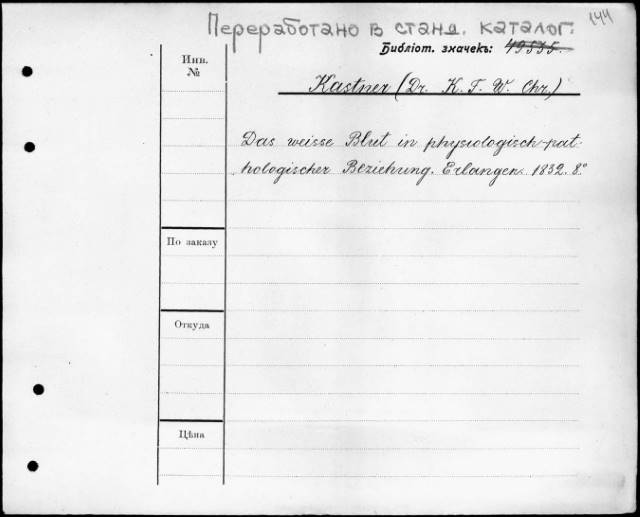 Переработано в станд. каталог.
144
Библіот. значекъ: 49535.
Инв. №
Kastner (Dr. K. T. W. Chr.)
Das weisse Blut in physiologisch-pat-
hologischer Beziehung. Erlangen. 1832. 8.°
По заказу
Откуда
Цѣна